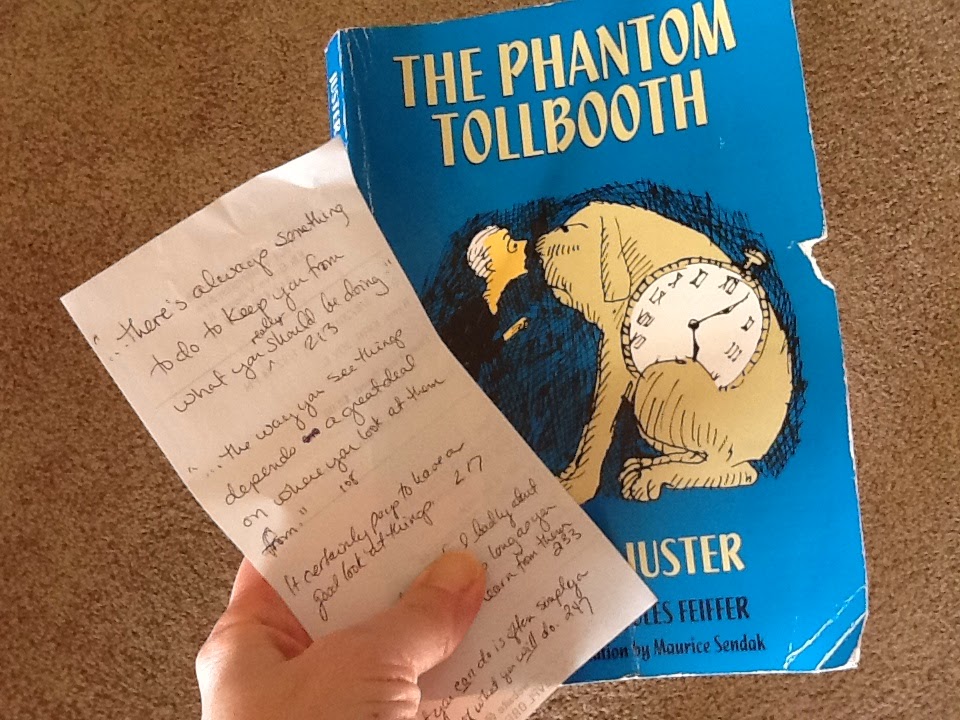 JUSTER
THE PHANTOM
TOLLBOOTH
JUSTER
JULES FEIFFER
by Maurice Sendak
"...there's always something
to do to keep you from
really
what you should be doing"
213
"...the way you see things
depends a great deal
on where you look at them
from."
108
It certainly pays to have a
good look at things 217
badly about
long as you
learn from them
233
you can do is often simply a
of what you will do. 247